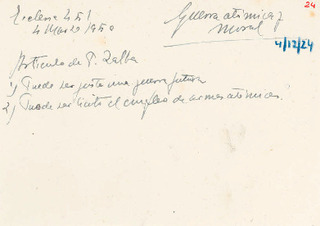 Ecclesia 451
4 Marzo 1950
Guerra atómica y
moral
24
4/12/24
Artículo de P. Zalba
1) Puede ser justa una guerra futura
2) Puede ser lícito el empleo de armas atómicas.